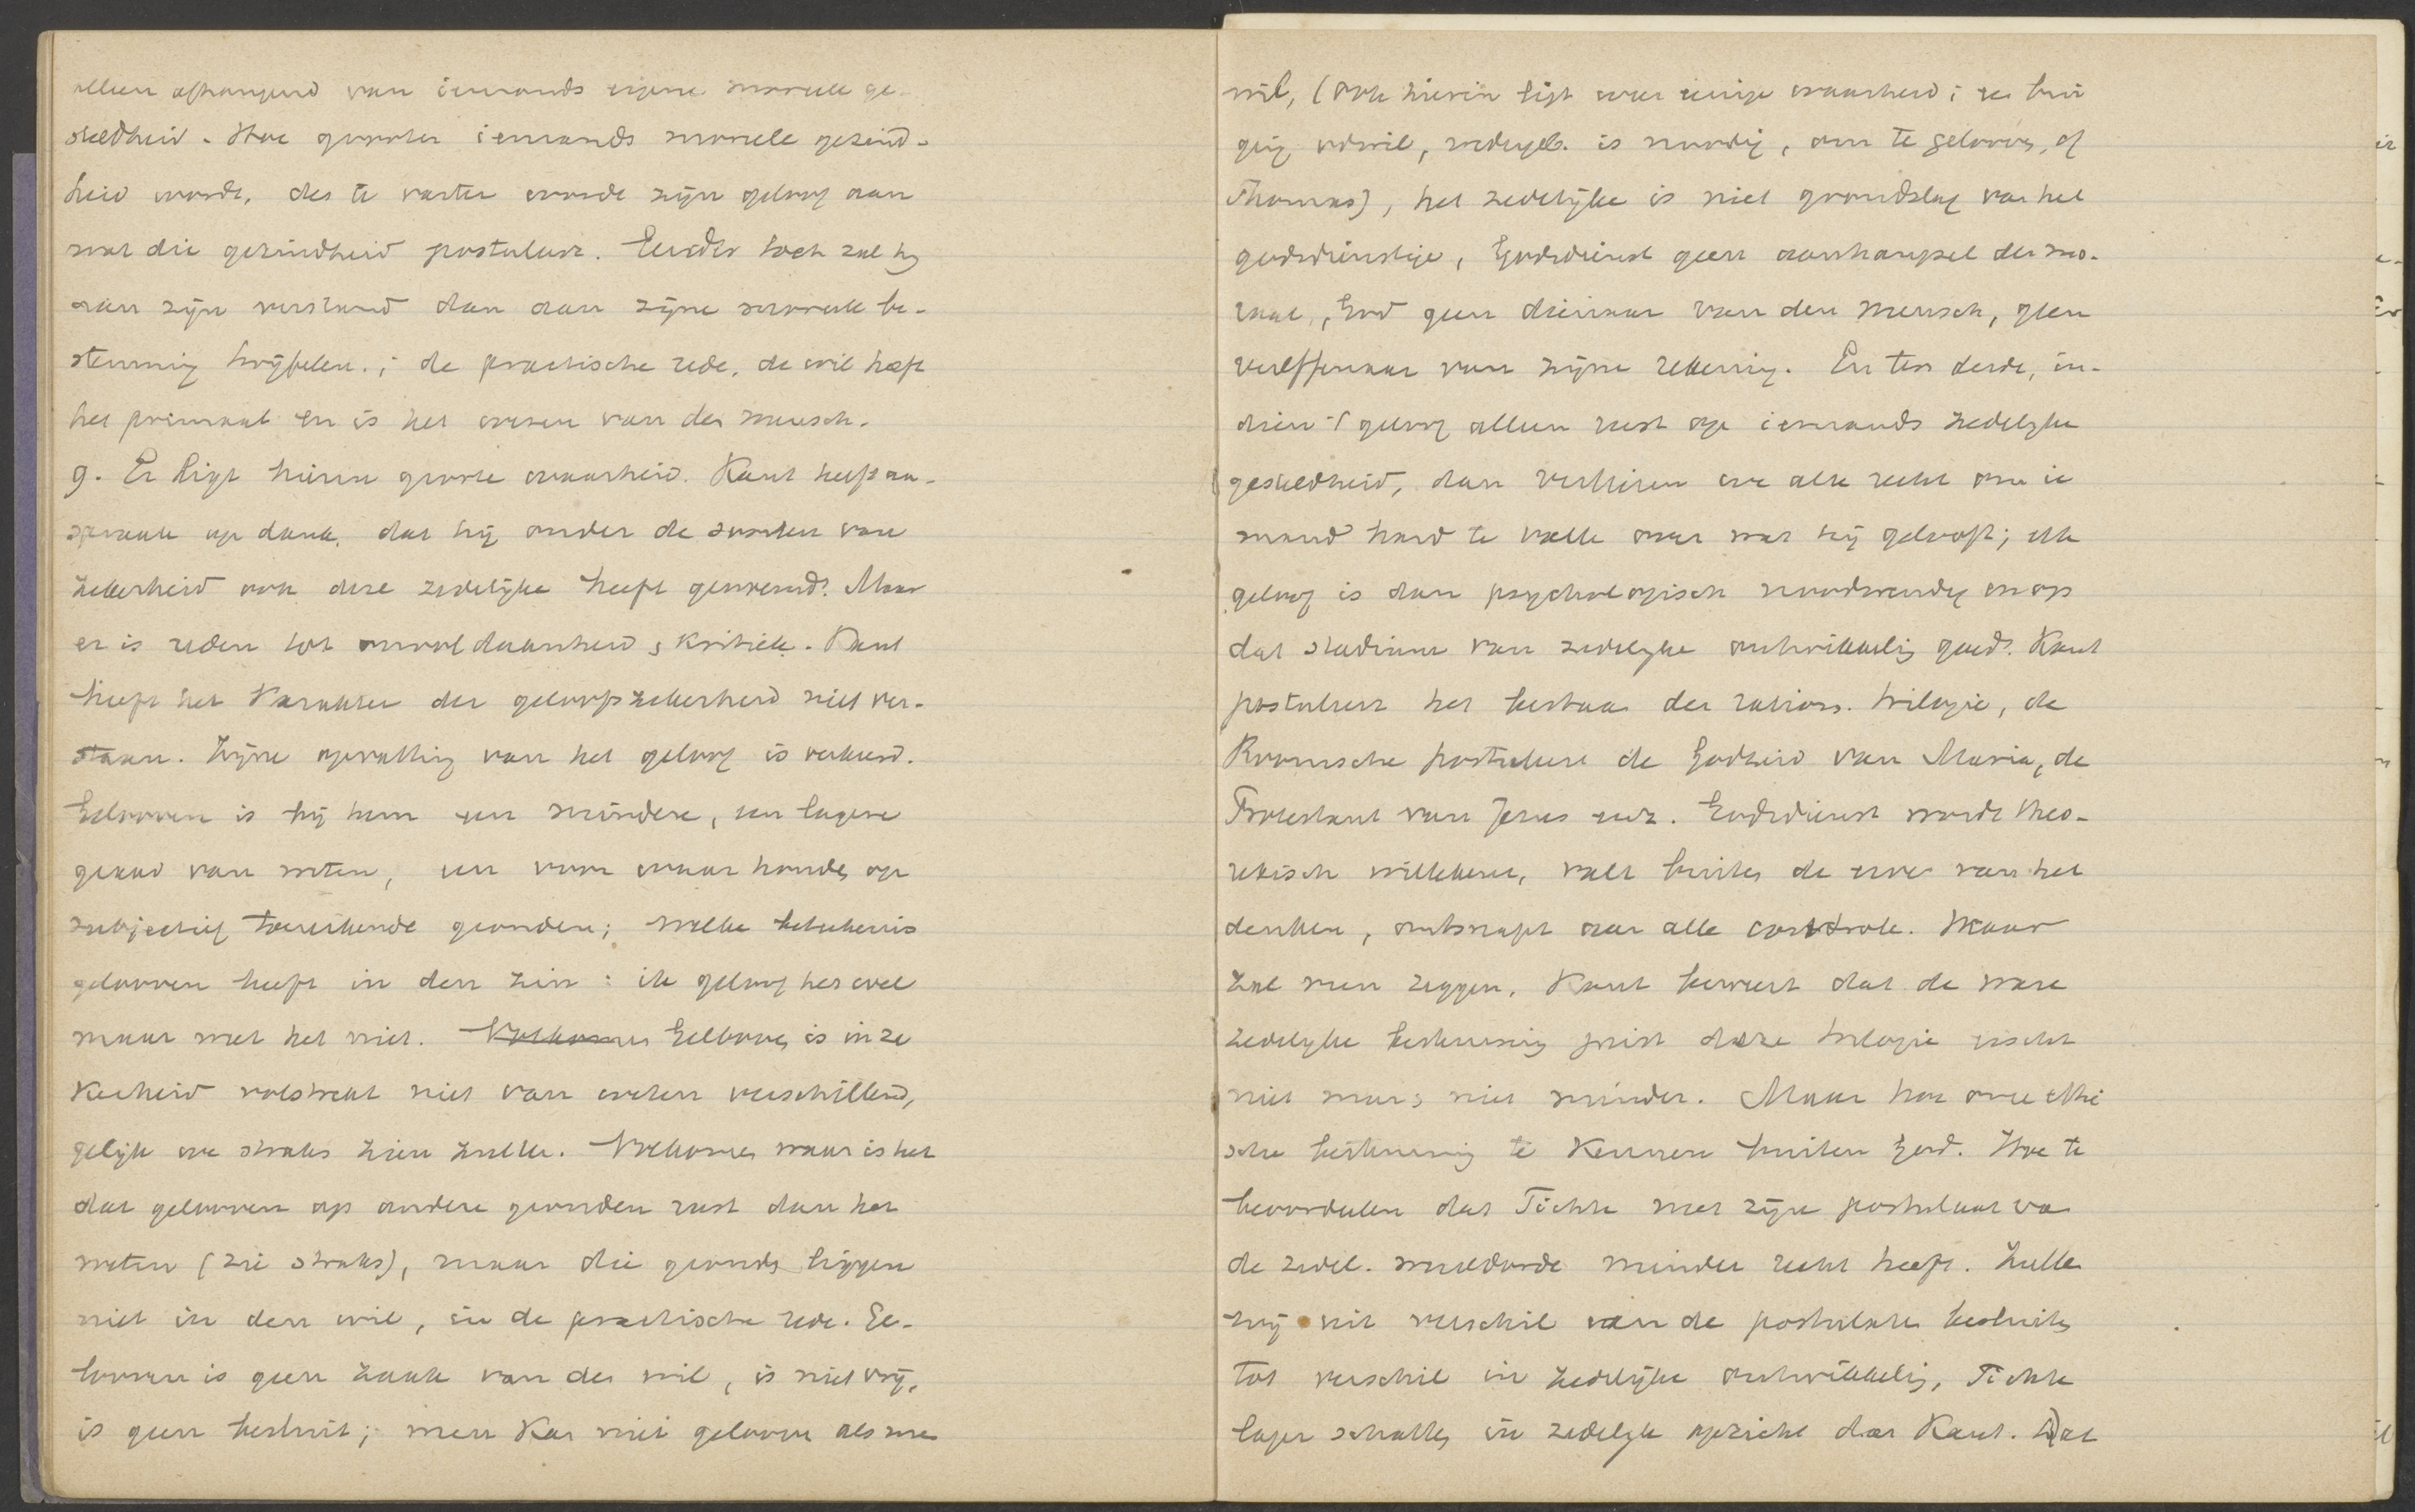 alleen afhangend van iemands eigene moreele ge-
steldheid. Hoe grooter iemands moreele gezind-
heid wordt, des te vaster wordt zijn geloof aan
wat die gezindheid postuleert. Eerder toch zal hij
aan zijn verstand dan aan zijne moreele be-
stemming twijfelen.; de practische rede, de wil heeft
het primaat en is het wezen van den mensch.
g. Er ligt hierin groote waarheid. Kant heeft aan-
spraak op dank, dat hij onder de soorten van
zekerheid ook deze zedelijke heeft genoemd. Maar
er is reden tot onvoldaanheid, kritiek. Kant
heeft het karakter der geloofszekerheid niet ver-
staan. Zijne opvatting van het geloof is verkeerd.
Gelooven is bij hem een mindere, een lagere
graad van weten, een voor waar houden op
subjectief toereikende gronden; welke beteekenis
gelooven heeft in den zin: ik geloof het wel
maar weet het niet. Gelooven is in ze
kerheid volstrekt niet van weten verschillend,
gelijk we straks zien zullen. Volkomen waar is het
dat gelooven op andere gronden rust dan het
weten (zie straks), maar die gronden liggen
niet in den wil, in de practische rede. Ge-
looven is geen zaak van den wil, is niet vrij,
is geen besluit; men kan niet gelooven als men
wil, (ook hierin ligt weer eenige waarheid;
is noodig, om te gelooven, cf
Thomas), het zedelijke is niet grondslag van het
godsdienstige, Godsdienst geen aanhangsel der mo-
raal, God geen dienaar van den mensch, geen
vereffenaar van zijne rekening. En ten derde, in-
dien 't geloof alleen rust op iemands zedelijke
gesteldheid, dan verliezen we alle recht om ie
mand hard te vallen over wat hij gelooft; elk
geloof is dan psychologisch noodwendig en op
dat stadium van zedelijke ontwikkeling goed. Kant
postuleert het bestaan der ration. trilogie, de
Roomsche postuleert de Godheid van Maria, de
Protestant van Jezus enz. Godsdienst wordt theo-
retisch willekeur, valt buiten de erve van het
denken, ontsnapt aan alle controle. Maar
zal men zeggen, Kant beweert dat de ware
zedelijke bestemming juist deze trilogie eischt
niet meer, niet minder. Maar hoe onze ethi
sche bestemming te kennen buiten God. Hoe te
beoordeelen dat Fichte met zijn postulaat van
de zedel. wereldorde minder recht heeft. Zullen
wij uit verschil van de postulaten besluiten
tot verschil in zedelijke ontwikkeling, Fichte
lager schatten in zedelijk opzicht dan Kant. Dat